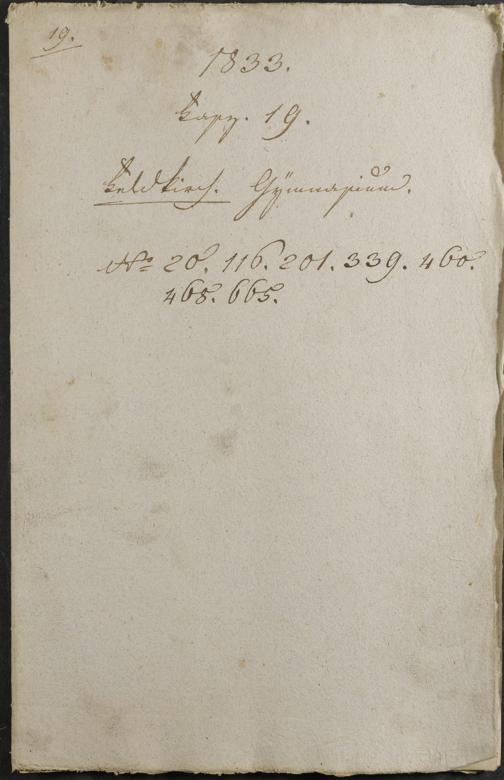 19.
1833.
Fasz. 19.
Feldkirch. Gymnasium.
No 20. 116. 201. 339. 460.
468. 665.